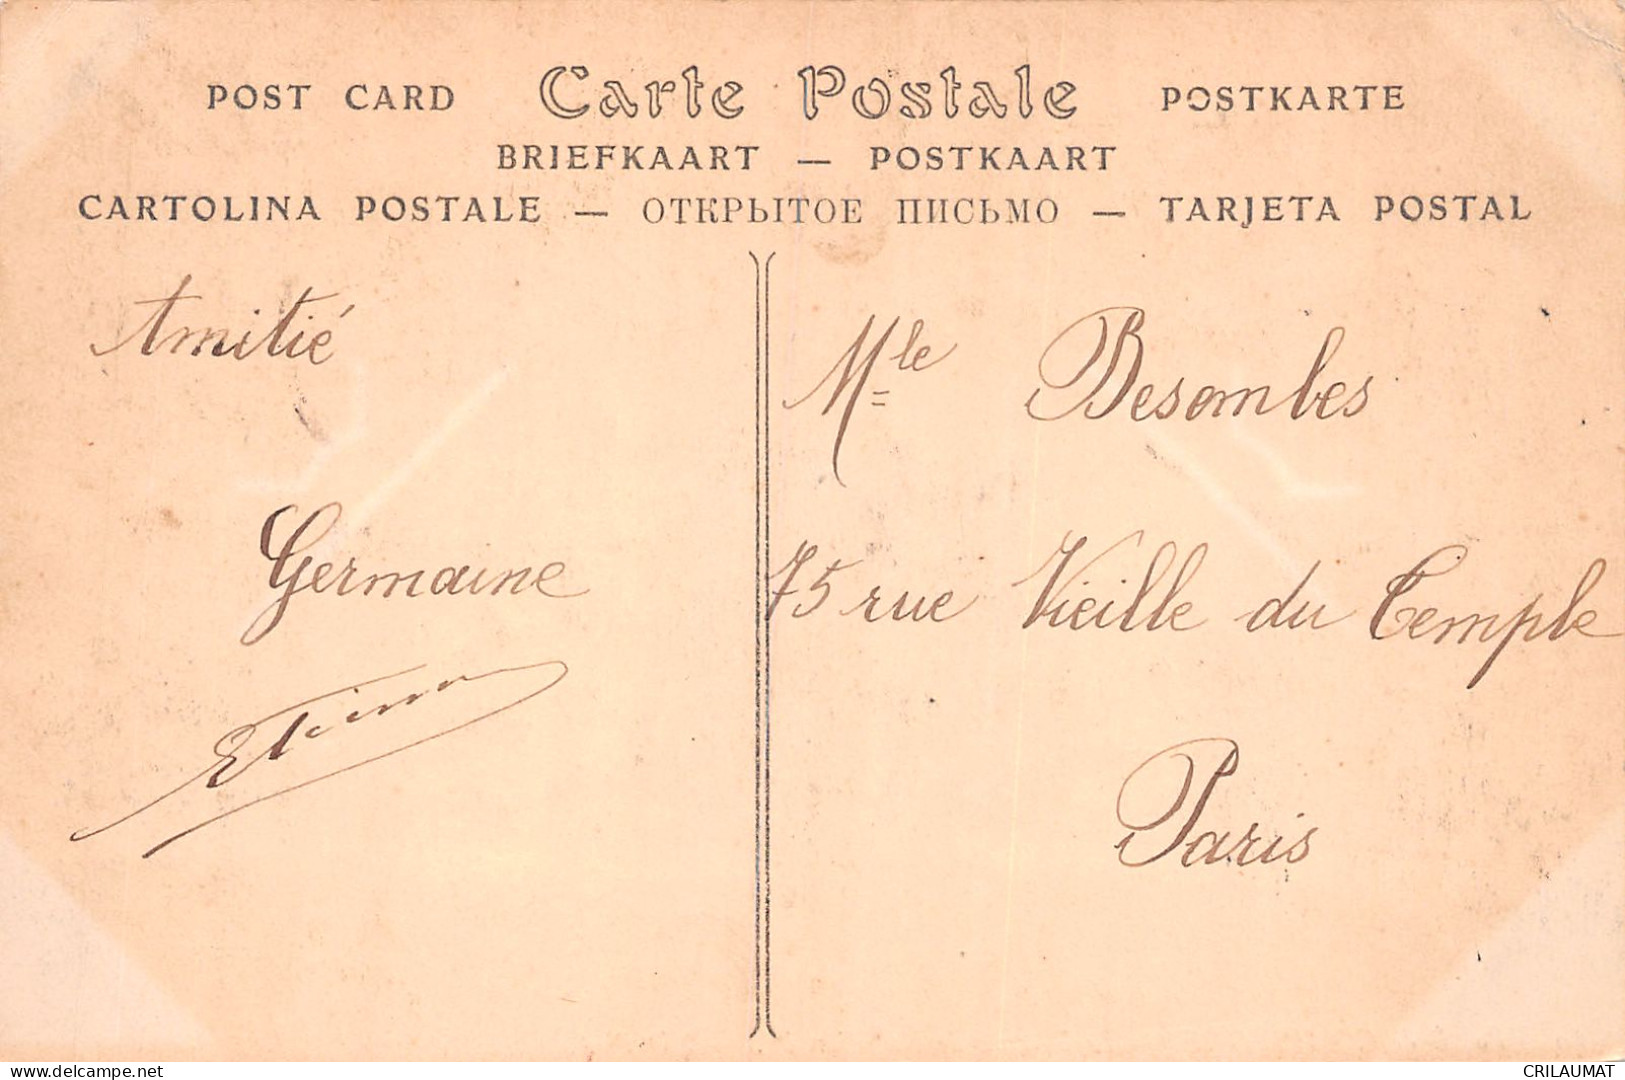 POST CARD Carte Postale POSTKARTE
BRIEFKAART — POSTKAART
CARTOLINA POSTALE — ОТКРЫТОЕ ПИСЬМО — TARJETA POSTAL
Amitié
Germaine
Mle Besombes
75 rue Vieille du Temple
Paris
delcampe.net
CRILAUMAT